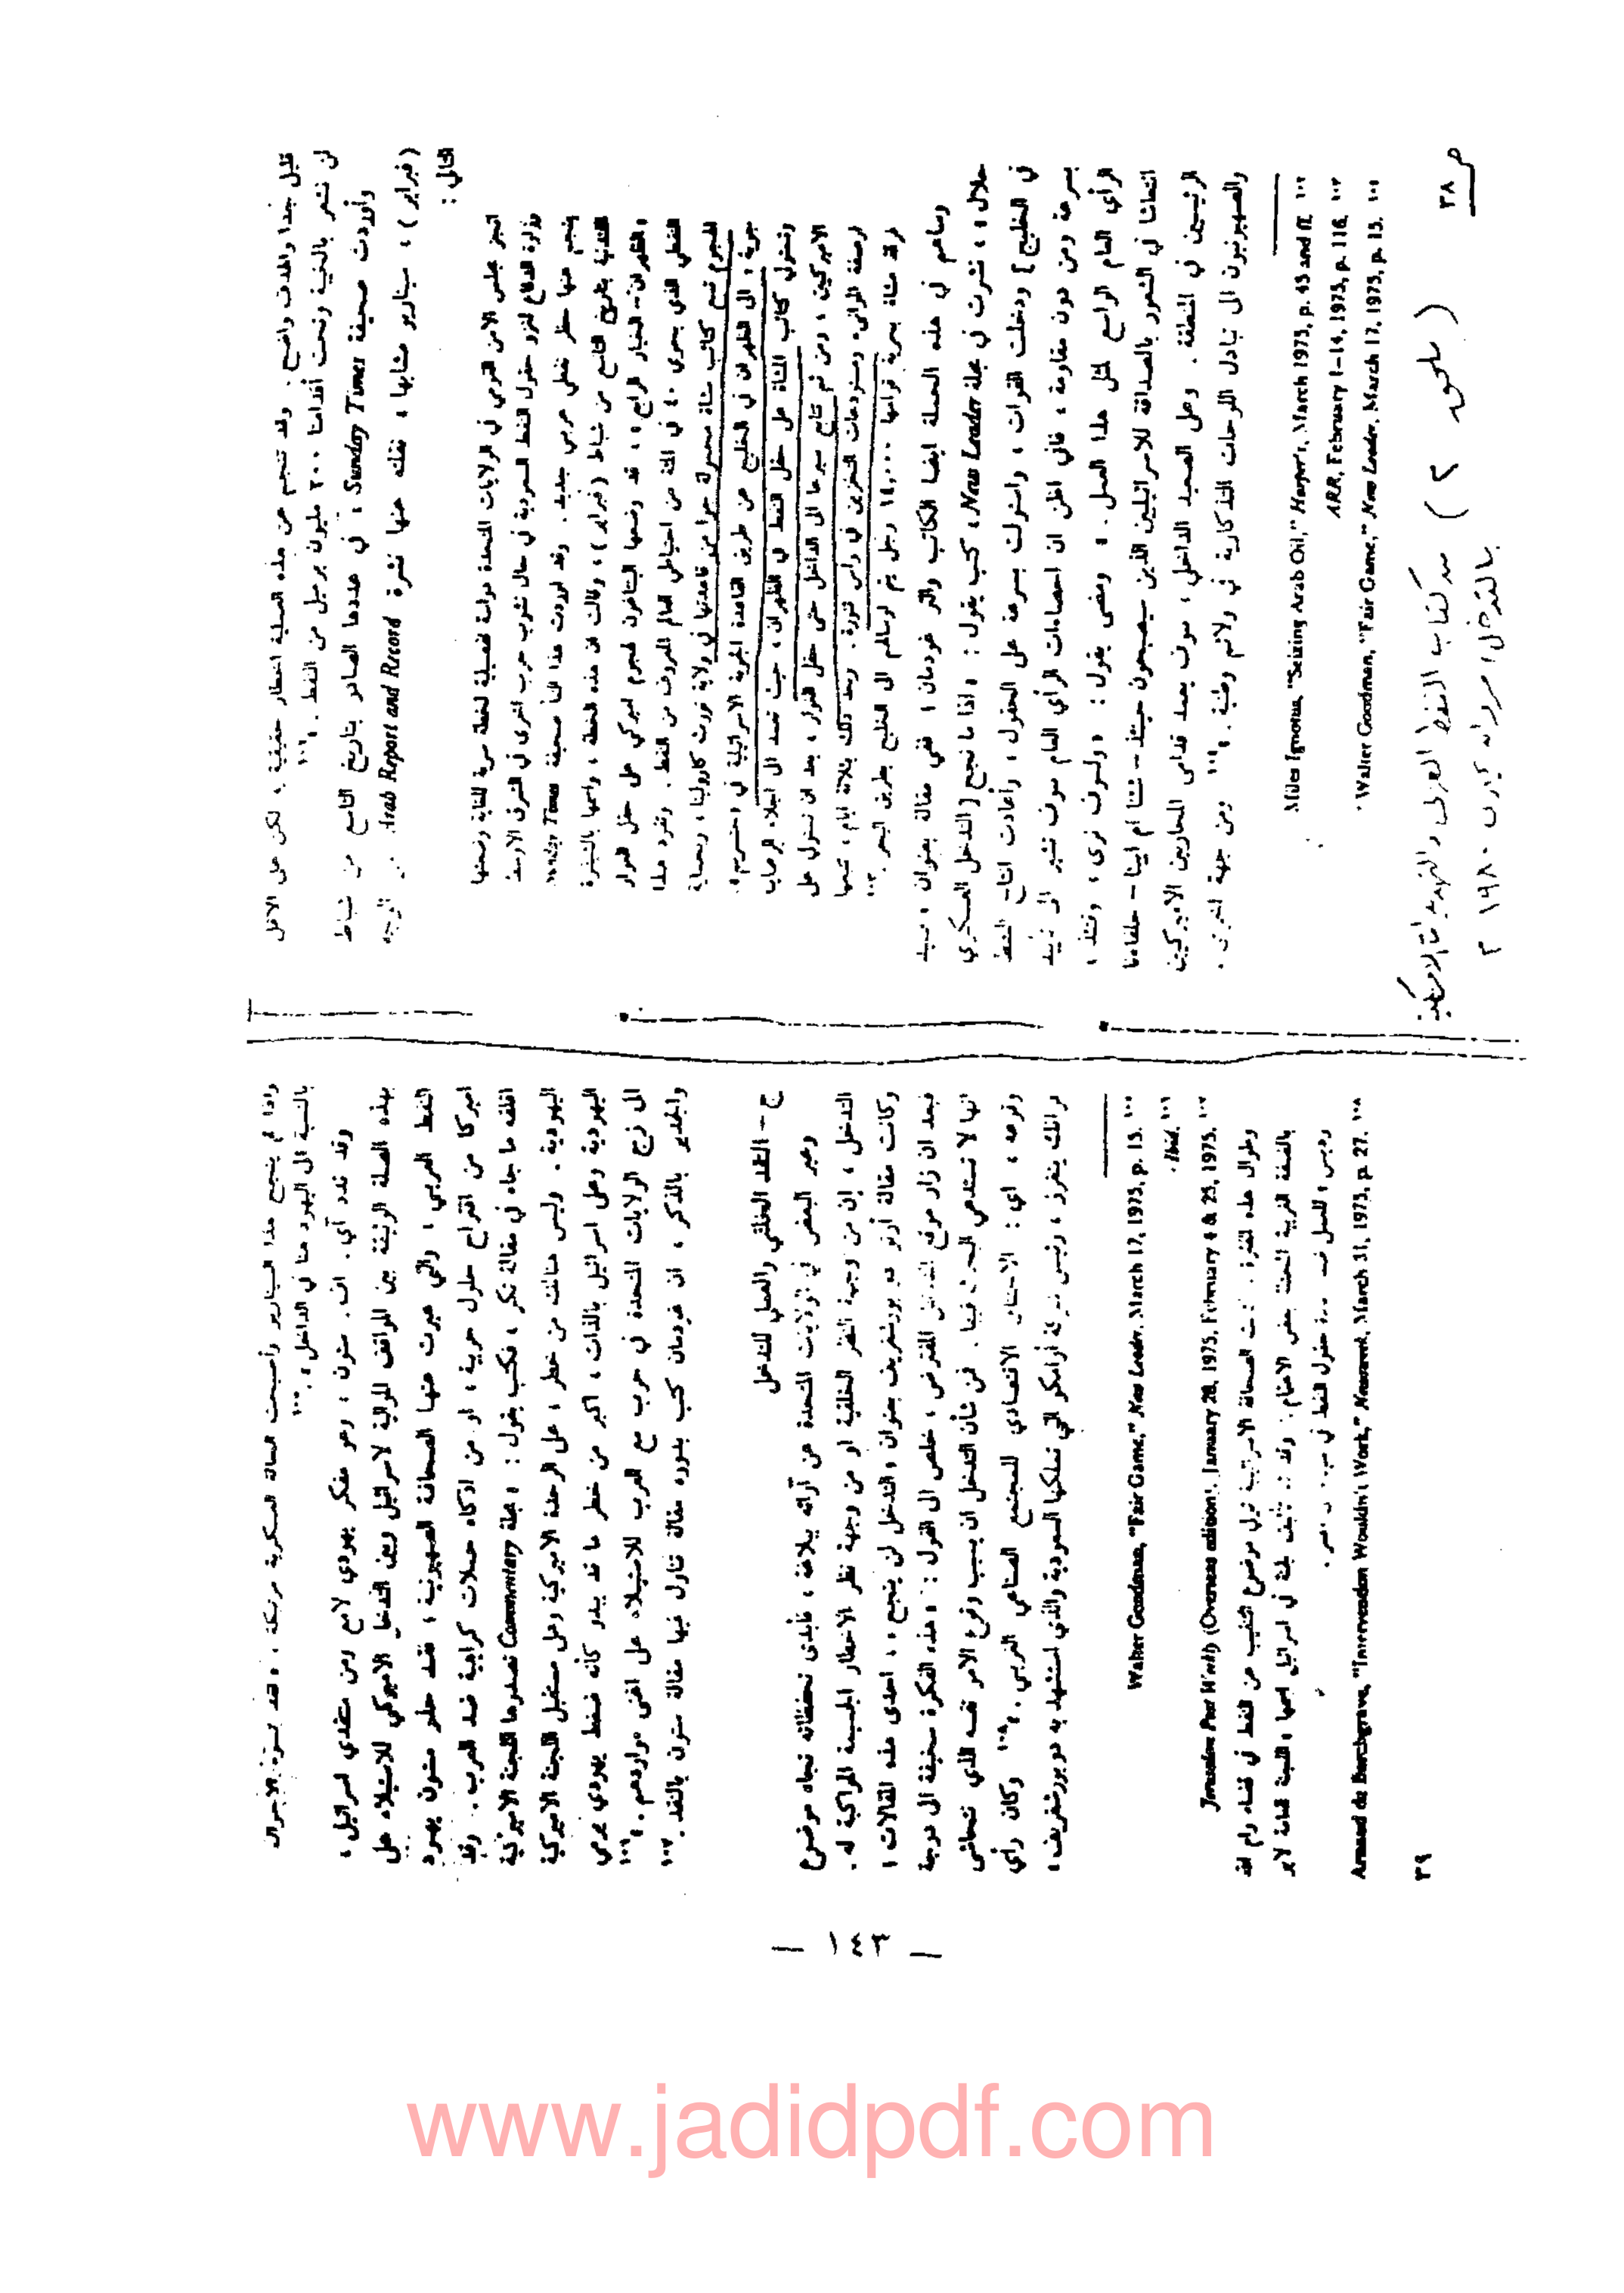 قليل جدا والهدف واضح. وقد تنجم عن هذه العملية اخطار حقيقية، لكن على الاقل
لن نشعر بالخيبة وتحت أقدامنا ٢٠٠ مليون برميل من النفط».١٠١
وأوردت صحيفة Sunday Times، في عددها الصادر بتاريخ التاسع من شباط
(فبراير)، سيناريو مشابها، نقلته عنها نشرة Arab Report and Record على الوجه
التالي:
انجز مجلس الامن القومي في الولايات المتحدة دراسة تفصيلية لخطة سرية للغاية وضعتها
وزارة الدفاع لغزو حقول النفط السعودية في حال نشوب حرب اخرى في الشرق الاوسط
ينجم عنها حظر نفطي عربي جديد. وقد اوردت هذا النبأ صحيفة Sunday Times
اللندنية بتاريخ التاسع من شباط (فبراير)، وقالت ان هذه الخطة، واسمها بالشيفرة
«الظهران - الخيار الرابع»، قد وضعها البنتاغون لهجوم اميركي على حقل الغوار
النفطي الذي يحوي ٤٠ في المئة من احتياطي العالم المعروف من النفط. وتفرد هذا
الهجوم تسع كتائب مشاة محمولة جوا من قاعدتها في ولاية نورث كارولينا، وبحماية
جوية، الى الظهران في الخليج عن طريق القاعدة الجوية الاسرائيلية في «حتسريم».
وتستولي كتائب المشاة على حقل النفط في الظهران، حيث تعمد الى اجلاء الرعايا
الاميركيين، ومن ثم تتابع سيرها الى الداخل حتى حقل الغوار، بعد ان تستولي على
ارصفة الموانىء ومستودعات التخزين في راس تنورة. وبعد ذلك بثلاثة ايام، تتبعها
فرقة مشاة بحرية قوامها ١٤,٠٠٠ رجل يتم ارسالهم الى الخليج بطريق البحر.١٠٢
وساهم في هذه الحملة ايضا الكاتب والتر غودمان؛ ففي مقالة بعنوان «صيد
حلال»، نشرت في مجلة New Leader، كتب يقول: «اذا ما نجح [التدخل العسكري
في الخليج] ودخلت القوات، واستولت بسرعة على الحقول، وأعادت انتاج النفط
بسرعة ومن دون مقاومة، فاني اظن ان احصاءات الرأي العام سوف تشير الى تأييد
الرأي العام الواسع لمثل هذا العمل.» ومضى يقول: «ولسوف نرى، وقتئذ،
انتعاشا في الشعور بالصداقة للاسرائيليين الذين سيصبحون حينئذ - شئنا ام ابينا - حلفاءنا
الرئيسيين في المنطقة. وعلى الصعيد الداخلي، سوف يعمد قدامى المحاربين الاميركيين
والصهيونيون الى تبادل اللوحات التذكارية في ولائم وطنية.»١٠٣ ومن جهة اخرى،
Miles Ignotus, "Seizing Arab Oil," Harper's, March 1975, p. 45 and ff. ١٠١
ARR, February 1-14, 1975, p. 116. ١٠٢
Walter Goodman, "Fair Game," New Leader, March 17, 1975, p. 15. ١٠٣
ص ٣٨
(ملحق ٢) من كتاب النفط العربي والتهديدات الامريكية
بالتدخل، مروان ١٩٨٠ م
واذا لم ينجح هذا السيناريو وأصبحت الحالة العسكرية مربكة، فقد تسوء الاحوال
بالنسبة الى اليهود هنا في الداخل.»١٠٥
وقد ندد آي. اف. ستون، وهو مفكر يهودي لامع ومن منتقدي اسرائيل،
بهذه الصلة الوثيقة بين المواقف الموالية لاسرائيل وبين التدخل الاميركي للاستيلاء على
النفط العربي، والتي عبرت عنها الصحافة الصهيونية، فقد حذر ستون يهود
اميركا من اقتراح حلول حربية، او من اذكاء حملات كراهية ضد العرب. وقد
اقلقه ما جاء في مقالة تكر، فكتب يقول: «مجلة Commentary تصدرها اللجنة الاميركية
اليهودية. وليس هنالك من خطر، على الوحدة الاميركية وعلى مستقبل اللجنة الاميركية
اليهودية وعلى اسرائيل بالذات، اكبر من خطر ما قد يبدو كأنه ضغط يهودي يرمي
الى زج الولايات المتحدة في حرب مع العرب للاستيلاء على اغنى مواردهم.»١٠٦
والجدير بالذكر، ان غودمان كتب بدوره مقالة تناول فيها مقالة ستون بالنقد.١٠٧
ج - النقد الخلقي والعملي للتدخل
وعبر البعض في الولايات المتحدة عن آرائه ببلاغة، فأبدى تحفظاته تجاه موضوع
التدخل، إن من وجهة النظر الخلقية او من وجهة نظر الاخطار الجسيمة المواكبة له.
وكانت مقالة أرنو دو بورشغريف بعنوان «التدخل لن ينجح»، احدى هذه المقالات؛
فبعد ان زار موقع التدخل المفترض، خلص الى القول: «هذه الفكرة سخيفة الى درجة
انها لا تستدعي البحث فيها. فمن شأن التدخل ان يسبب وقوع الامر نفسه الذي نتحاشى
وقوعه، اي: الاختناق الاقتصادي للمجتمع الصناعي الغربي.»١٠٨ وكان رأي
فرانك يغرز، رئيس شركة أرامكو التي تملكها السعودية والذي استشهد به دو بورشغريف،
Walter Goodman, "Fair Game," New Leader, March 17, 1975, p. 15. ١٠٥
Ibid. ١٠٦
Jerusalem Post Weekly (Overseas edition), January 28, 1975, February 4 & 25, 1975. ١٠٧
وطوال هذه الفترة، كانت الصحافة الاسرائيلية تولي موضوع التنقيب عن النفط في قضاء رام الله
بالضفة الغربية المحتلة بعض الاهتمام. وقد تم تأليف لجنة في اسرائيل اسمها «اللجنة
Arnaud de Borchgrave, "Intervention Wouldn't Work," Newsweek, March 31, 1975, p. 27. ١٠٨
٣٩
— ١٤٣ —
www.jadidpdf.com